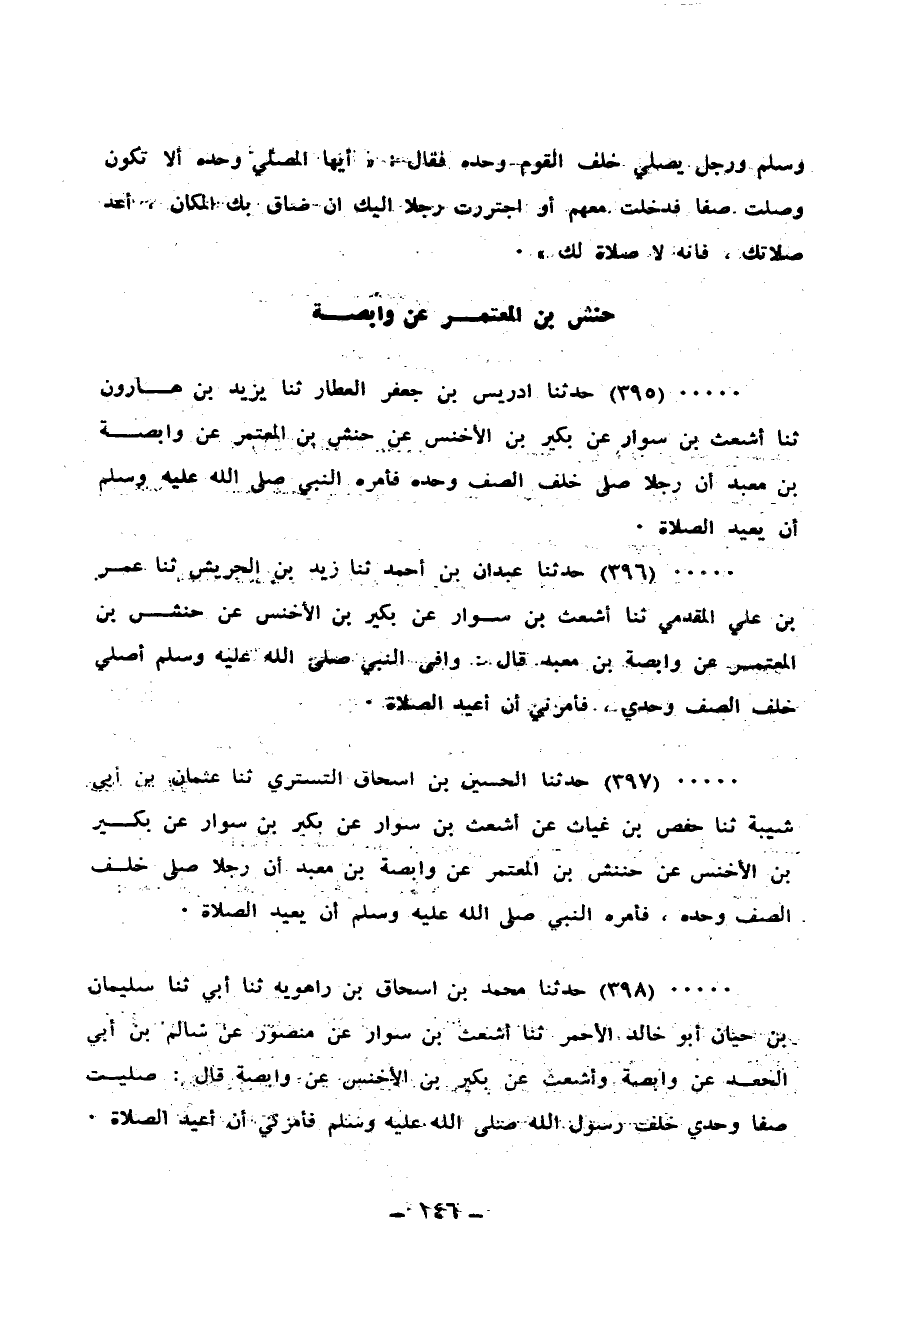 وسلم ورجل يصلي خلف القوم وحده فقال : « أيها المصلي وحده ألا تكون
وصلت صفا فدخلت معهم أو اجتررت رجلا اليك ان ضاق بك المكان ، أعد
صلاتك ، فانه لا صلاة لك » ٠
حنش بن المعتمـــر عن وابصـــة
٠٠٠٠٠ (٣٩٥) حدثنا ادريس بن جعفر العطار ثنا يزيد بن هـــارون
ثنا أشعث بن سوار عن بكير بن الأخنس عن حنش بن المعتمر عن وابصـــة
بن معبد أن رجلا صلى خلف الصف وحده فأمره النبي صلى الله عليه وسلم
أن يعيد الصلاة ٠
٠٠٠٠٠ (٣٩٦) حدثنا عبدان بن أحمد ثنا زيد بن الجريش ثنا عمـــر
بن علي المقدمي ثنا أشعث بن ســوار عن بكير بن الأخنس عن حنشــس بن
المعتمــر عن وابصة بن معبد قال : وافى النبي صلى الله عليه وسلم أصلي
خلف الصف وحدي ، فأمرني أن أعيد الصلاة ٠
٠٠٠٠٠ (٣٩٧) حدثنا الحسين بن اسحاق التستري ثنا عثمان بن أبي
شيبة ثنا حفص بن غياث عن أشعث بن سوار عن بكير بن سوار عن بكـــير
بن الأخنس عن حننش بن المعتمر عن وابصة بن معبد أن رجلا صلى خلــف
الصف وحده ، فأمره النبي صلى الله عليه وسلم أن يعيد الصلاة ٠
٠٠٠٠٠ (٣٩٨) حدثنا محمد بن اسحاق بن راهويه ثنا أبي ثنا سليمان
بن حيان أبو خالد الأحمر ثنا أشعث بن سوار عن منصور عن سالم بن أبي
الجعــد عن وابصة وأشعث عن بكير بن الأخنس عن وابصة قال : صليــت
صفا وحدي خلف رسول الله صلى الله عليه وسلم فأمرني أن أعيد الصلاة ٠
ـ ٢٤٦ ـ